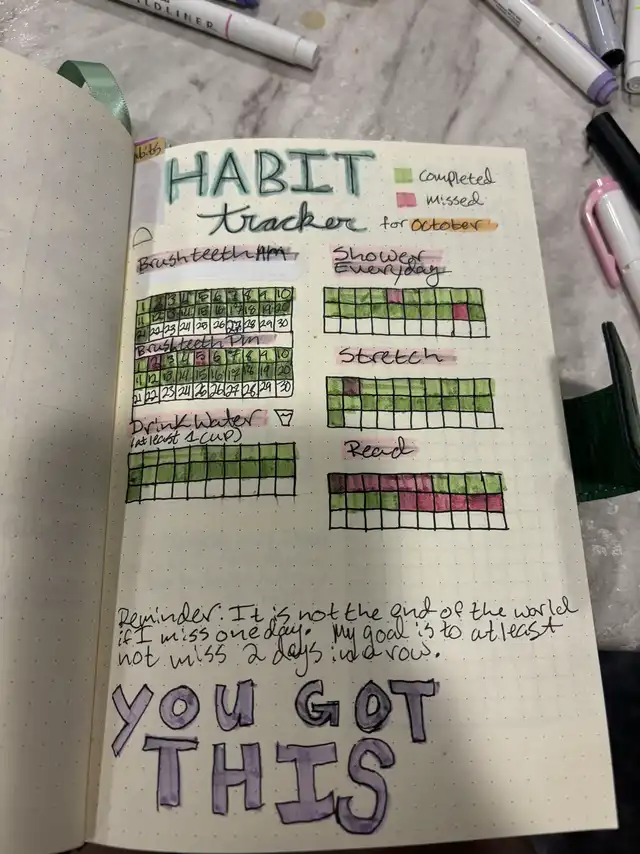 ILDLINER
HABIT
tracker
for October
completed
missed
Brush teeth AM
1 2 3 4 5 6 7 8 9 10
21 22 23 24 25 26 27 28 29 30
Brush teeth Pm
1 2 3 4 5 6 7 8 9 10
21 22 23 24 25 26 27 28 29 30
Drink Water
(at least 1 cup)
Shower
Everyday
Stretch
Read
Reminder: It is not the end of the world
if I miss one day. My goal is to at least
not miss 2 days in a row.
YOU GOT
THIS